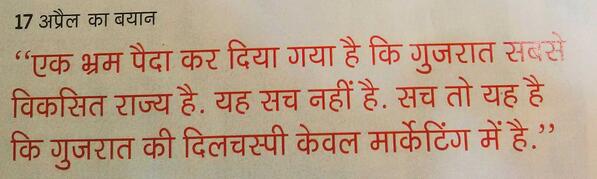 17 अप्रैल का बयान
“एक भ्रम पैदा कर दिया गया है कि गुजरात सबसे
विकसित राज्य है. यह सच नहीं है. सच तो यह है
कि गुजरात की दिलचस्पी केवल मार्केटिंग में है.”